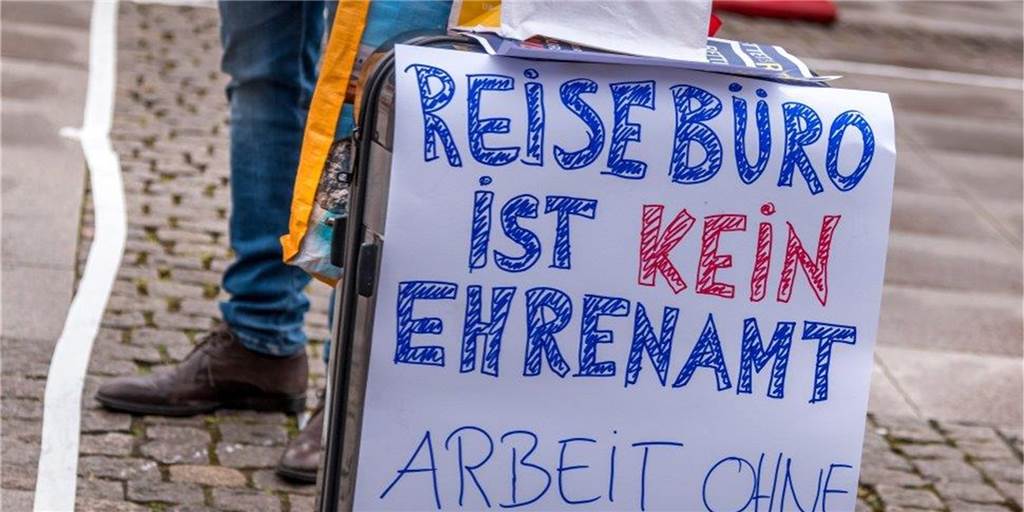 REISEBÜRO
iST KEiN
EHRENAMT
ARBEiT OHNE